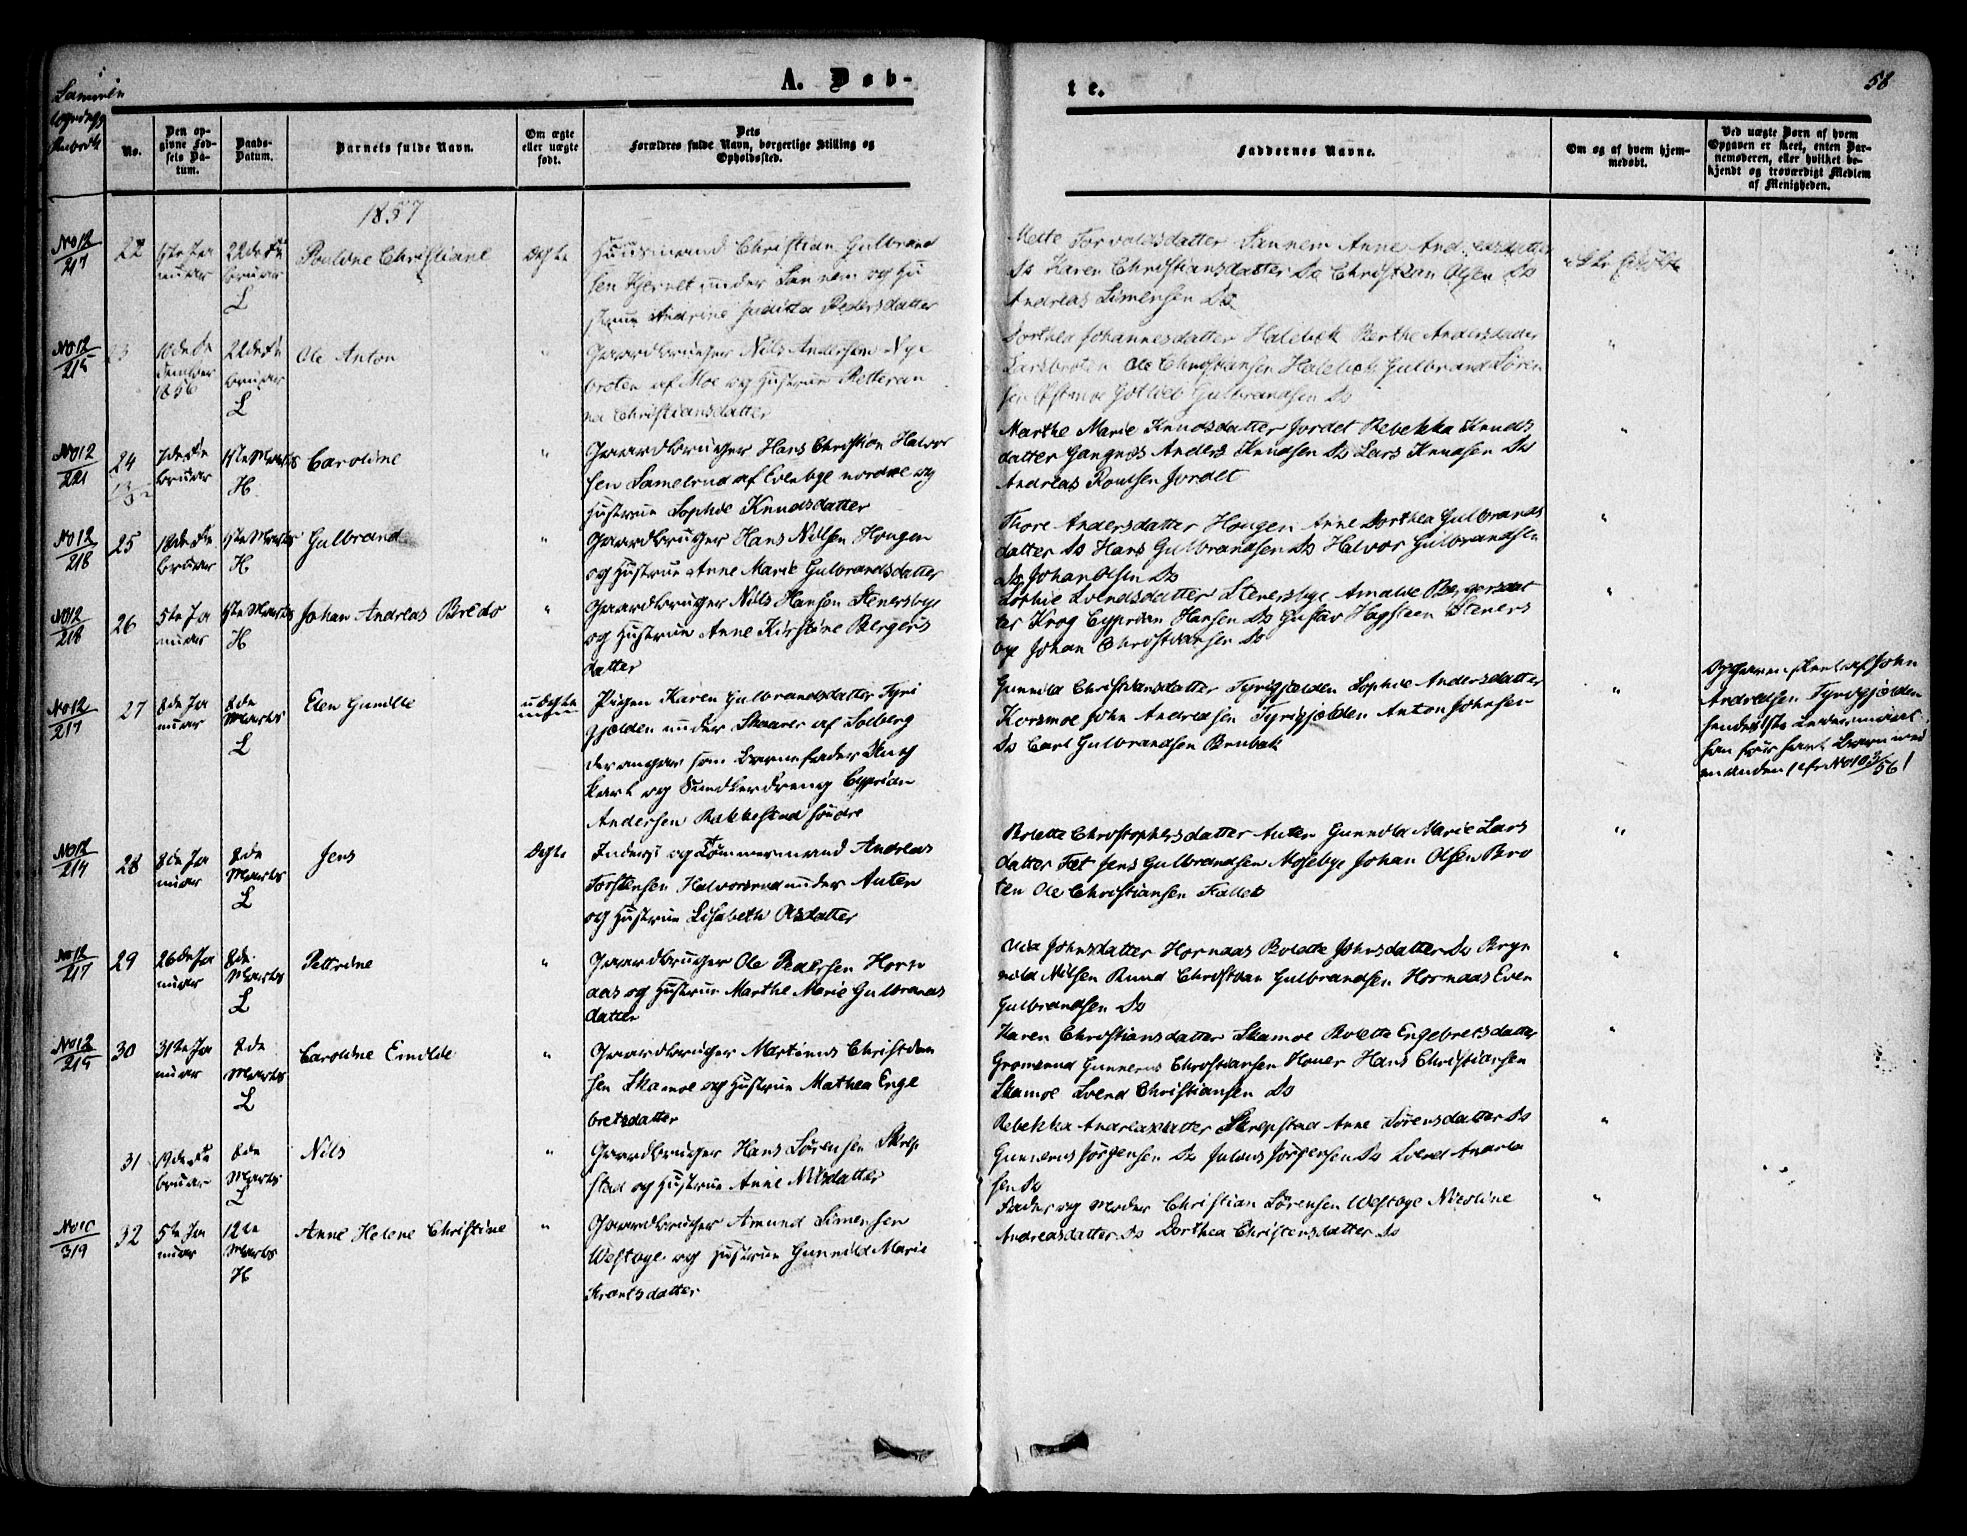 A. Døb-
te.
58
No.
Den op-
givne Fød-
sels Da-
tum.
Daabs-
Datum.
Barnets fulde Navn.
Om ægte
eller uægte
født.
Dets
Forældres fulde Navn, borgerlige Stilling og
Opholdssted.
Faddernes Navne.
Om og af hvem hjem-
medøbt.
Ved uægte Børn af hvem
Opgaven er skeet, enten Bar-
nemoderen, eller hvilket be-
kjendt og troværdigt Medlem
af Menigheden.
1857
No 12
217
22
22de Fe
bruar
L
Christiane
Ægte
Huusmand Christian Gulbrand
sen under Sannem og Hu
struu Andrine Juditta Pedersdatter
Mette Torvaldsdatter Sannem Anne
Do Karen Christiansdatter Do Christian Olsen Do
Andreas Simensen Do
No 12
215
23
10de De
cember
1856
22de Fe
bruar
L
Ole Anton
"
Gaardbruger Nils Andersen Nye
broten af Moe og Hustrue Petteran
na Christiansdatter
Dorthea Johannesdatter Halebek Berthe Andersdatter
Larsbroten Ole Christiansen Halebek Gulbrand Søren
sen Østmoe Gulbrandsen Do
"
No 12
221
24
7de Fe
bruar
1ste Marts
H.
Caroline
"
Gaardbruger Hans Christian Halvor
sen af Evenbye nordre og
Hustrue Sophie Knudsdatter
Marthe Marie Knudsdatter Jordet Rebekka Knuds
datter Gangnes Anders Knudsen Do Lars Knudsen Do
Andreas Poulsen Jordet
"
No 12
218
25
18de Fe
bruar
1ste Marts
H.
Gulbrand
"
Gaardbruger Hans Nilsen Hougen
og Hustrue Anne Marie Gulbrandsdatter
Thore Andersdatter Hougen Anne Dorthea Gulbrands
datter Do Hans Gulbrandsen Do Halvor Gulbrandsen
Do Johan Olsen Do
"
No 12
218
26
5te Ja
nuar
1ste Marts
H
Johan Andreas Bredo
"
Gaardbruger Nils Hansen Stenersbye
og Hustrue Anne Kirstine Bergers
datter
Sophie Svendsdatter Stenersbye Amalde Bergersdat
ter Krog Cyprian Hansen Do Gustav Hagsteen Steners
bye Johan Christiansen Do
"
No 12
217
27
8de Ja
nuar
8de
Marts
L
Elen Gunilde
uægte
Pigen Karen Gulbrandsdatter Tyri
gjælden under Skaarer af Solberg
der angav som Barnefader Ung
karl og Cyprian
Andersen Rakkestad søndre
Gunnild Christiansdatter Tyrigjælden Sophie Andersdatter
Korsmoe John Andreasen Tyrigjælden Anton Johnsen
Do Carl Gulbrandsen Brubak
"
Opgaven skeet af John
Andreasen Tyrigjælden
hendes 1ste Leiermaal
han før havt Barn med
en anden 1 cfr No 103/56!
No 12
214
28
8de Ja
nuar
8de
Marts
L
Jens
Ægte
Inderst og Tømmermand Andreas
Torstensen Halvorsrud under Auten
og Hustrue Lisabeth Olsdatter
Bolette Christophersdatter Auten Gunnild Marie Lars
datter Fæt Jens Gulbrandsen Mosebye Johan Olsen Bro
ten Ole Christiansen Fallet
"
No 12
217
29
26de Ja
nuar
8de
Marts
L
Pettrine
"
Gaardbruger Ole Pedersen Horn
aas og Hustrue Marthe Marie Gulbrands
datter
Johnsdatter Hornaas Bolette Johnsdatter Do Bryn
nild Nilsen Rund Christian Gulbrandsen Hornaas Even
Gulbrandsen Do
"
No 12
215
30
31te Ja
nuar
8de
Marts
L
Caroline Emilde
"
Gaardbruger Martinus Christian
sen Skamoe og Hustrue Mathea Enge
bretsdatter
Karen Christiansdatter Skamoe Bolette Engebretsdatter
Gromsrud Gunnerus Christiansen Hans Christiansen
Skamoe Svend Christiansen Do
"
31
19de Fe
bruar
8de
Marts
L
Nils
"
Gaardbruger Hans Sørensen Skrep
stad og Hustrue Anne Nilsdatter
Rebekka Andreasdatter Skrepstad Anne Sørensdatter Do
Gunnerus Jørgensen Do Julius Jørgensen Do Svend Andrea
sen Do
"
No 10
319
32
5te Ja
nuar
12te
Marts
H
Anne Helene Christine
"
Gaardbruger Amund Simensen
Westbye og Hustrue Gunnild Marie
datter
Fader og Moder Christian Sørensen Westbye Nicoline
Andreasdatter Do Dorthea Christensdatter Do
"